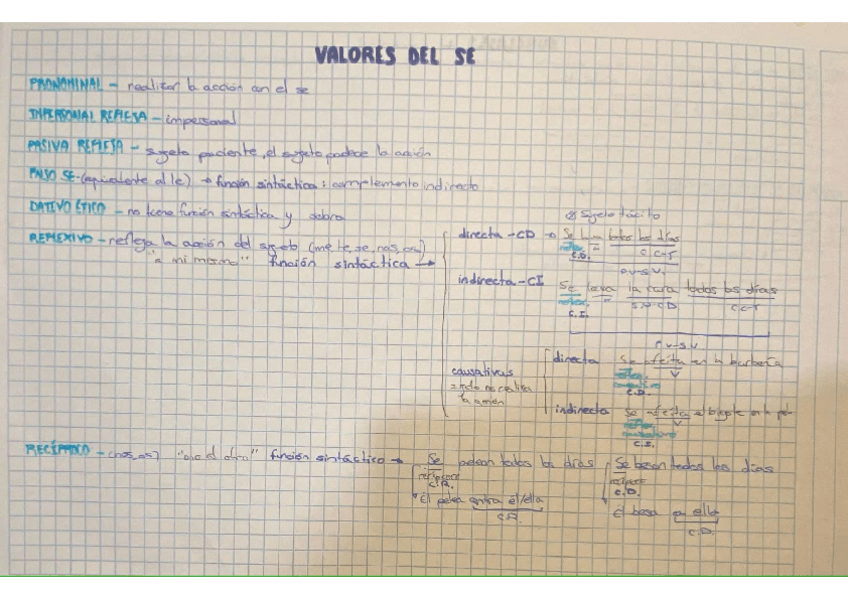 VALORES DEL SE
PRONOMINAL - realizar la acción con el se
IMPERSONAL REFLEJA - impersonal
PASIVA REFLEJA - sujeto paciente, el sujeto padece la acción
FALSO SE - (equivalente al le) → función sintáctica: complemento indirecto
DATIVO ÉTICO - no tiene función sintáctica y sobra
REFLEXIVO - refleja la acción del sujeto (me, te, se, nos, os)
"a mi mismo" función sintáctica →
Sujeto tácito
directa - CD → Se todos los días
C.D. C.C.T
P.V-S.V.
indirecta - CI Se lava la cara todos los días
reflex. S.N-CD. C.C.T
C.I.
P.V-S.V
causativas
no realiza
la acción
directa Se afeita en la barbería
V
C.D.
indirecta Se afeita el bigote en la
V
C.I.
RECÍPROCO - (nos, os) "a el otro" función sintáctica → Se pelean todos los días Se besan todos los días
C.D.
Él pelea contra él/ella Él besa a ella
C.D.